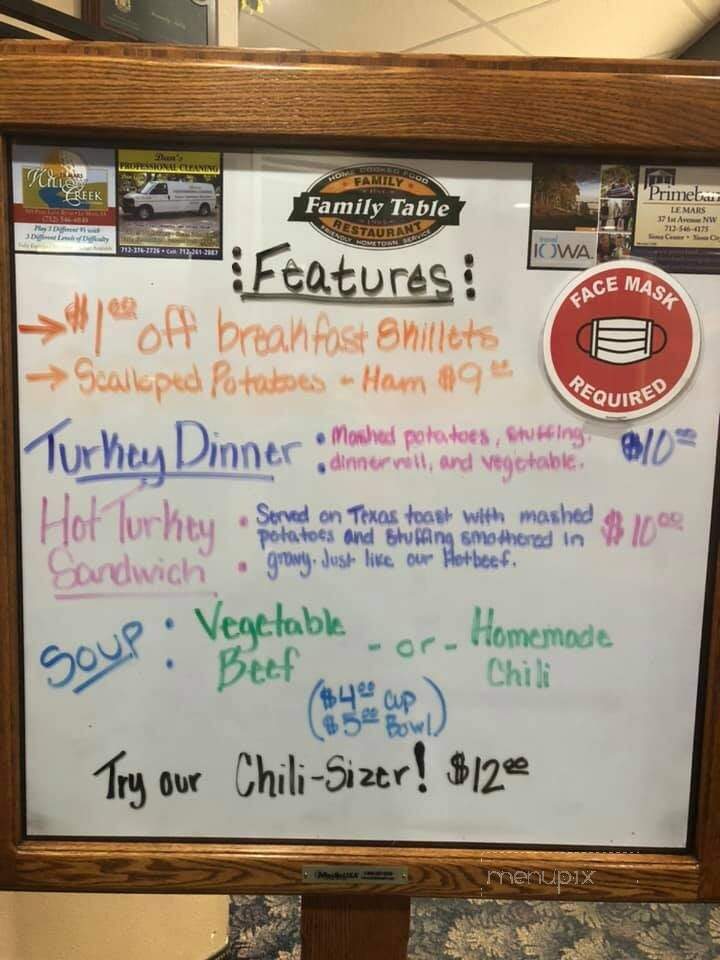 Mill Creek
Play 3 Different 9's with
3 Different Levels of Difficulty
Dan's
PROFESSIONAL CLEANING
712-376-2726 • Cell: 712-261-2887
HOME COOKED FOOD
FAMILY
Family Table
RESTAURANT
FRIENDLY HOMETOWN SERVICE
travel
IOWA
Primeban
LE MARS
37 1st Avenue NW
712-546-4175
Sioux Center • Sioux
FACE MASK
REQUIRED
Features:
→ $1.00 off breakfast Skillets
→ Scalloped Potatoes - Ham $9.00
Turkey Dinner • Mashed potatoes, stuffing, $10.00
• dinner roll, and vegetable.
Hot Turkey • Served on Texas toast with mashed $10.00
potatoes and stuffing smothered in
Sandwich • gravy. Just like our Hotbeef.
Soup: Vegetable - or - Homemade
Beef Chili
($4.00 cup
$5.00 Bowl)
Try our Chili-Sizer! $12.00
menupix